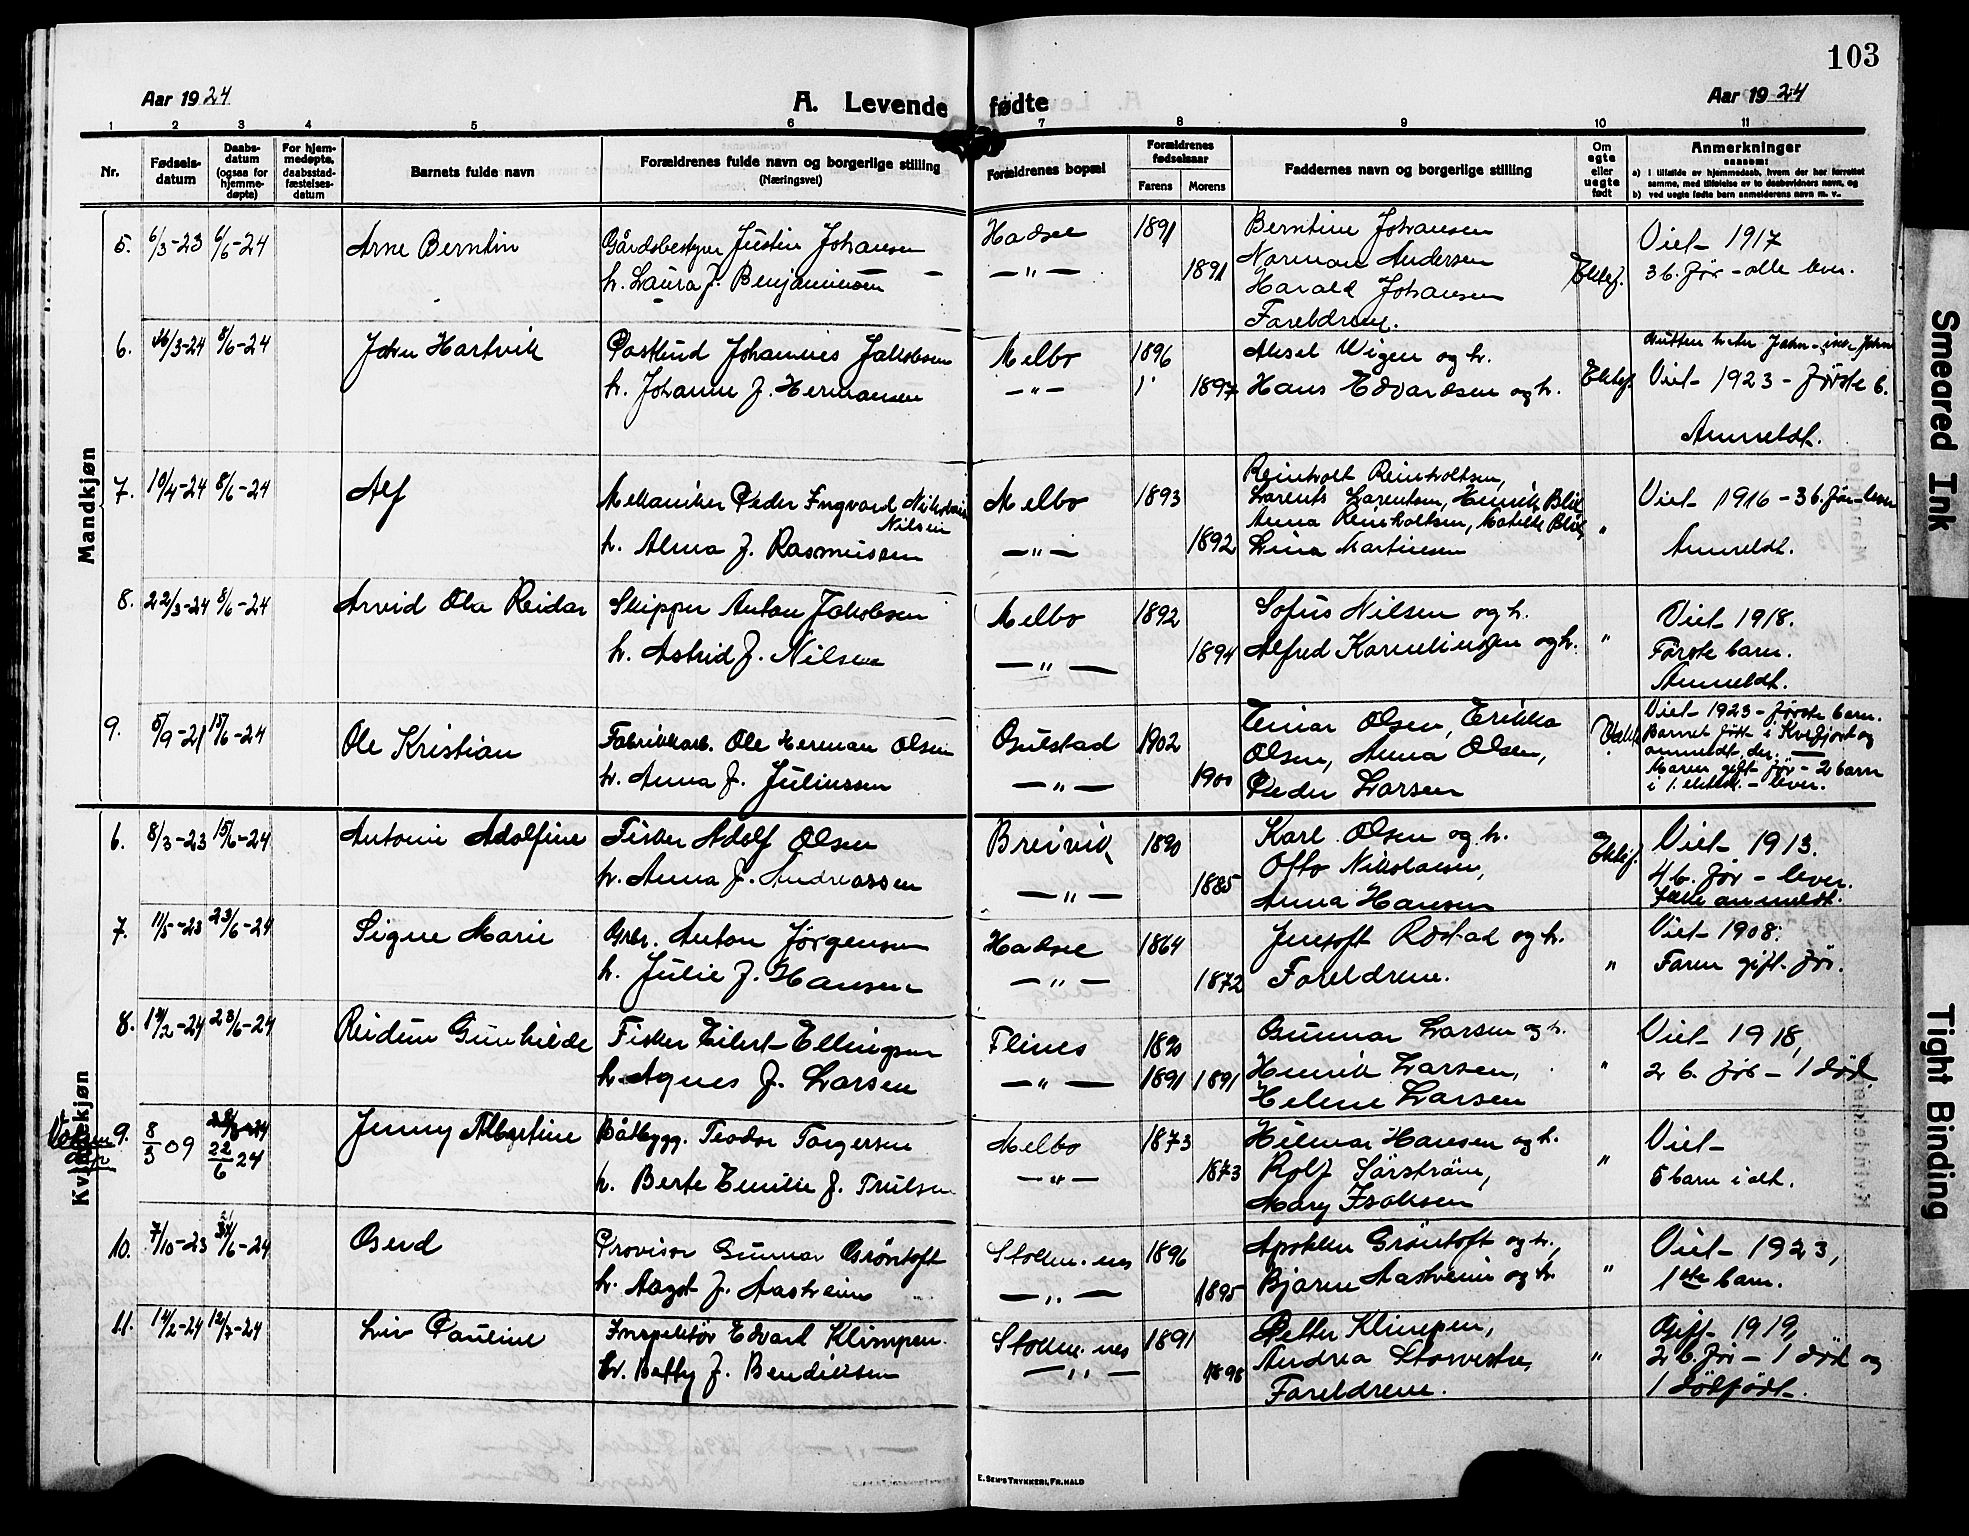 103
Aar 1924
A. Levende fødte
Aar 1924
1 2 3 4 5 6 7 8 9 10 11
Nr.
Fødsels-
datum
Daabs-
datum
(ogsaa for
hjemme-
døpte)
For hjem-
medøpte,
daabsstad-
fæstelses-
datum
Barnets fulde navn
Forældrenes fulde navn og borgerlige stilling
(Næringsvei)
Forældrenes bopæl
Forældrenes
fødselsaar
Farens
Morens
Faddernes navn og borgerlige stilling
Om
egte
eller
uegte
født
Anmerkninger
saasom:
a) I tilfælde av hjemmedaab, hvem der har forrettet
samme, med tilføielse av to daabsvidners navn, og
b) ved uegte fødte barn anmelderens navn m. v..
Mandkjøn
5. 6/3-23 6/6-24 Arne Berntin
Gårdsbestyrer Justin Johansen
h. Laura f. Benjaminsen
Hadsel
—"—
1891
1891
Berntine Johansen
Norman Andersen
Harald Johansen
Foreldrene.
Ektef.
Viet 1917
3 b. før - alle lever.
6. 26/3-24 8/6-24 John Hartvik
Postbud Johannes Jakobsen
h. Johanne f. Hermansen
Melbo
—"—
1896
1897
Aksel Wigen og h.
Hans Edvardsen og h.
Ektef.
Viet 1923 - første b.
Anmeldt.
7. 10/4-24 8/6-24 Alf
Mekaniker Peder Ingvard Nikolai
Nilsen
h. Alma f. Rasmussen
Melbo
—"—
1893
1892
Reinholt Reinholtsen,
Lorents Lorentsen, Henrik Blix
Anna Reinholtsen, Matilde Blix,
Lina Martinsen
"
Viet 1916 - 3 b. før - lever
Anmeldt.
8. 22/3-24 8/6-24 Arvid Ola Reidar
Skipper Anton Jakobsen
h. Astrid f. Nilsen
Melbo
—"—
1892
1894
Sofus Nilsen og h.
Alfred Korneliussen og h.
"
Viet 1918.
Første barn.
Anmeldt.
9. 5/9-21 15/6-24 Ole Kristian
Fabrikkarb. Ole Herman Olsen
h. Anna f. Juliussen
Gulstad
—"—
1902
1900
Einar Olsen, Erikka
Olsen, Anna Olsen,
Peder Larsen
Viet 1923 - første barn.
Barnet født i Kvefjord og
anmeldt der. —
Moren gift før - 2 barn
i 1. ektesk. - lever.
Kvindekjøn
6. 8/3-23 15/6-24 Antonie Adolfine
Fisker Adolf Olsen
h. Anna f. Andreassen
Breivik
—"—
1890
1885
Karl Olsen og h.
Otto Nikolaisen,
Anna Hansen
Ektef.
Viet 1913.
4 b. før - lever.
Ikke anmeldt.
7. 11/5-23 23/6-24 Signe Marie
Grbr. Anton Jørgensen
h. Julie f. Hansen
Hadsel
—"—
1864
1872
Jentoft Rostad og h.
Foreldrene.
"
Viet 1908.
Faren gift før.
8. 19/2-24 23/6-24 Reidun Gunhilde
Fisker Eilert Ellingsen
h. Agnes f. Larsen
Flines
—"—
1890
1891 1891
Gunnar Larsen og h.
Henrik Larsen,
Helene Larsen
"
Viet 1918,
2 b. før - 1 død.
Voksen
9. 8/3 09 22/6 24 Jenny Albertine
Båtbygg. Teodor Torgersen
h. Berte Emilie f. Trulsen
Melbo
—"—
1873
1873
Hilmar Hansen og h.
Rolf Sørstrøm,
Mary Isaksen
"
Viet
5 barn i alt.
10. 7/10-23 /6-24 Gerd
Provisor Gunnar Grøntoft
h. Aagot f. Aasheim
Stokm.nes
—"—
1896
1895
Apoteker Grøntoft og h.,
Bjarne Aasheim og h.
"
Viet 1923,
1ste barn.
11. 14/2-24 12/7-24 Liv Pauline
Inspektør Edvart Klimpen.
h. Batty f. Bendiksen
Stokm.nes
—"—
1891
1898
Petter Klimpen,
Andrea Storvestre,
Foreldrene.
"
Gift 1919,
2 b. før - 1 død og
1 dødfødt.
E. Sem's Trykkeri, Fr.hald
Smeared Ink
Tight Binding